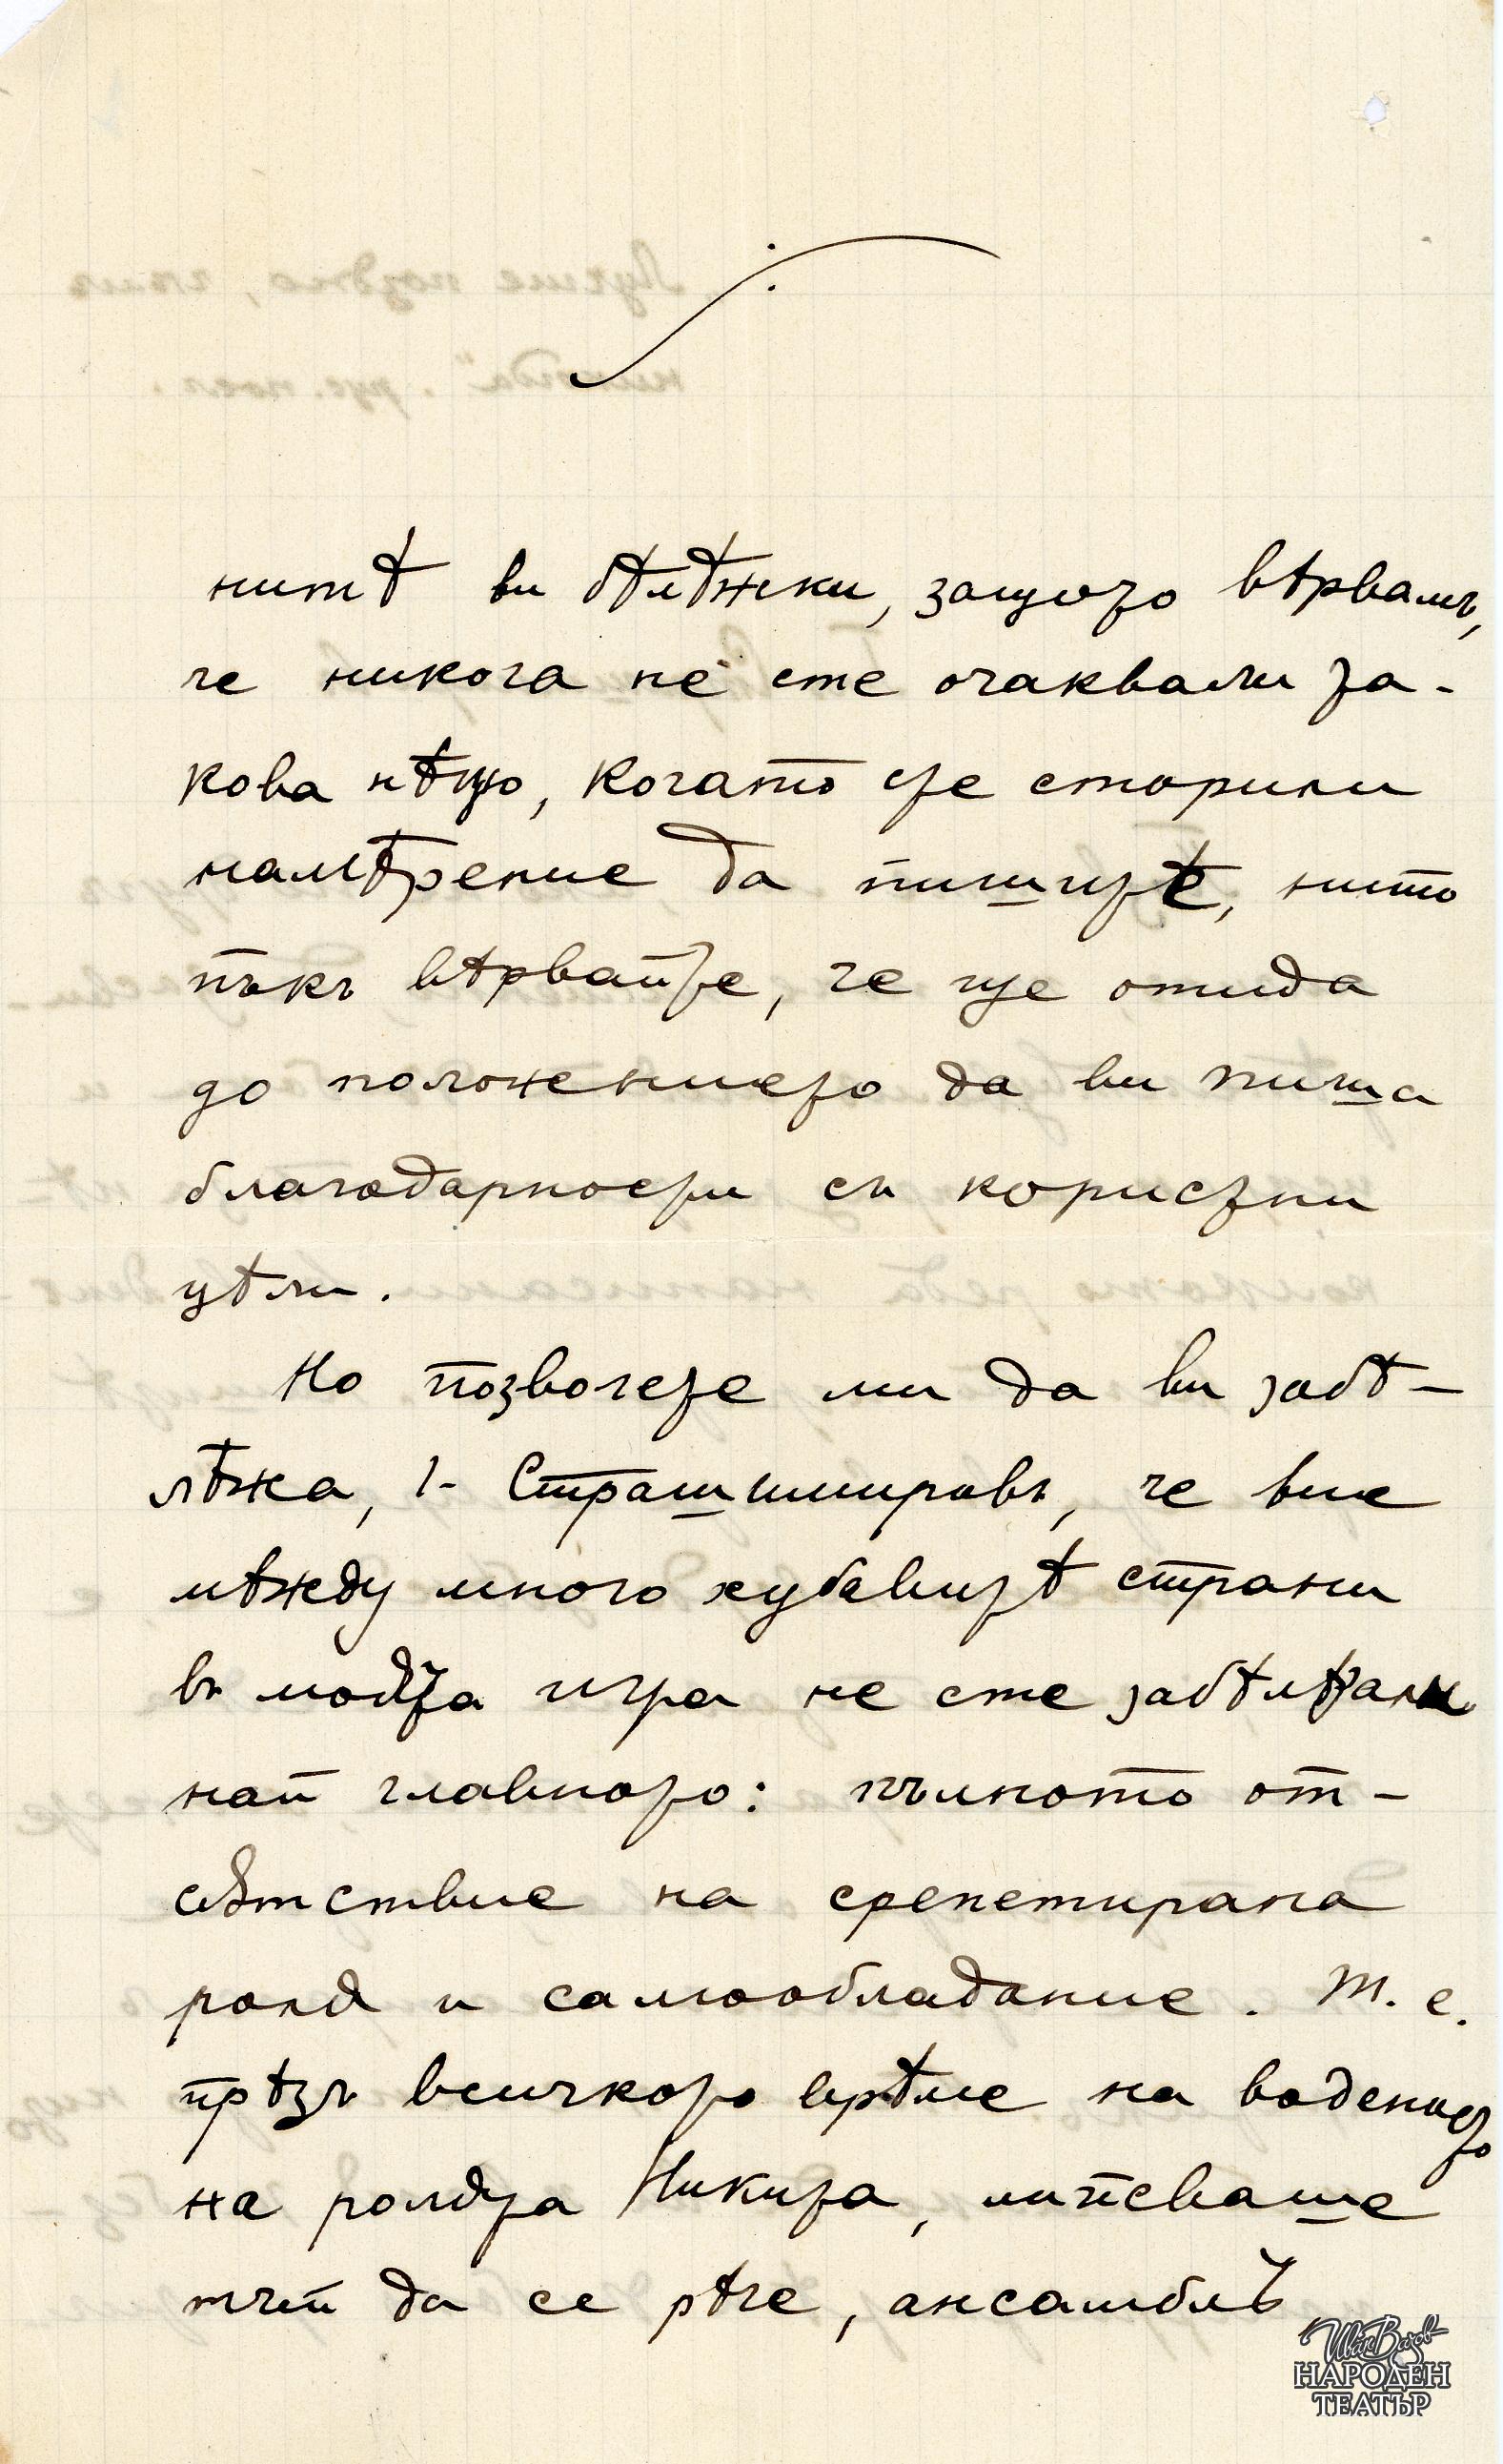 нитѣ ви бѣлѣжки, защото вѣрвамъ,
че никога не сте очаквали та-
кова нѣщо, когато сте сторили
намѣрение да пишите, нито
пъкъ вѣрвайте, че ще отида
до положението да ви пиша
благодарности съ користни
цѣли.
Но позволете ми да ви забѣ-
лѣжа, г- Страшимировъ, че вие
мѣжду много хубавитѣ страни
въ моята игра не сте забѣлѣзали
най главното: пълното от-
сѫтствие на срепетирана
роля и самообладание. Т. е.
прѣзъ всичкото врѣме на воденето
на ролята Никита, липсваше
тъй да се рѣче, ансамблъ
Иван Вазов
НАРОДЕН
ТЕАТЪР